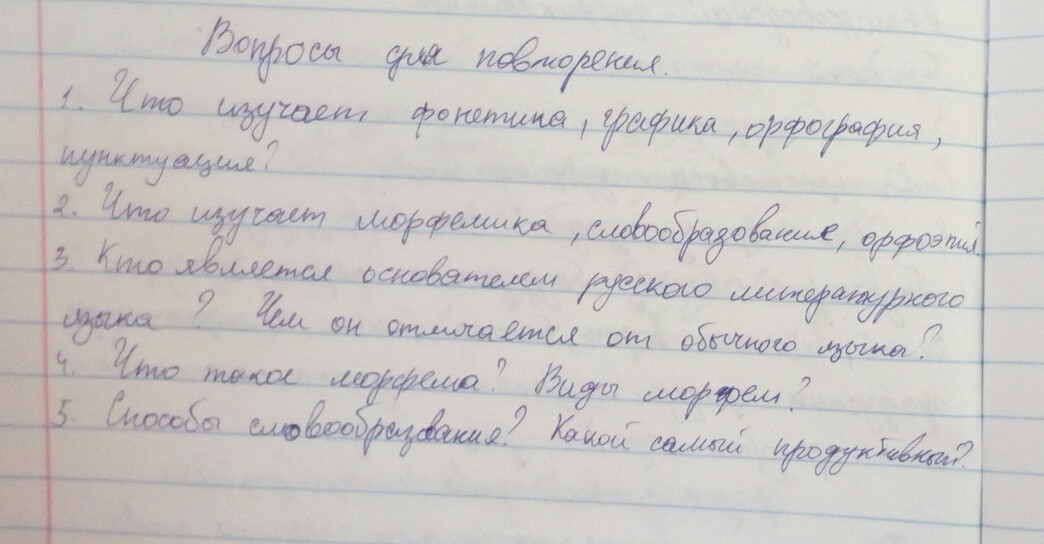 Вопросы для повторения.
1. Что изучает фонетика, графика, орфография,
пунктуация?
2. Что изучает морфемика, словообразование, орфоэпия
3. Кто является основателем русского литературного
языка? Чем он отличается от обычного языка?
4. Что такое морфема? Виды морфем?
5. Способы словообразования? Какой самый продуктивный?